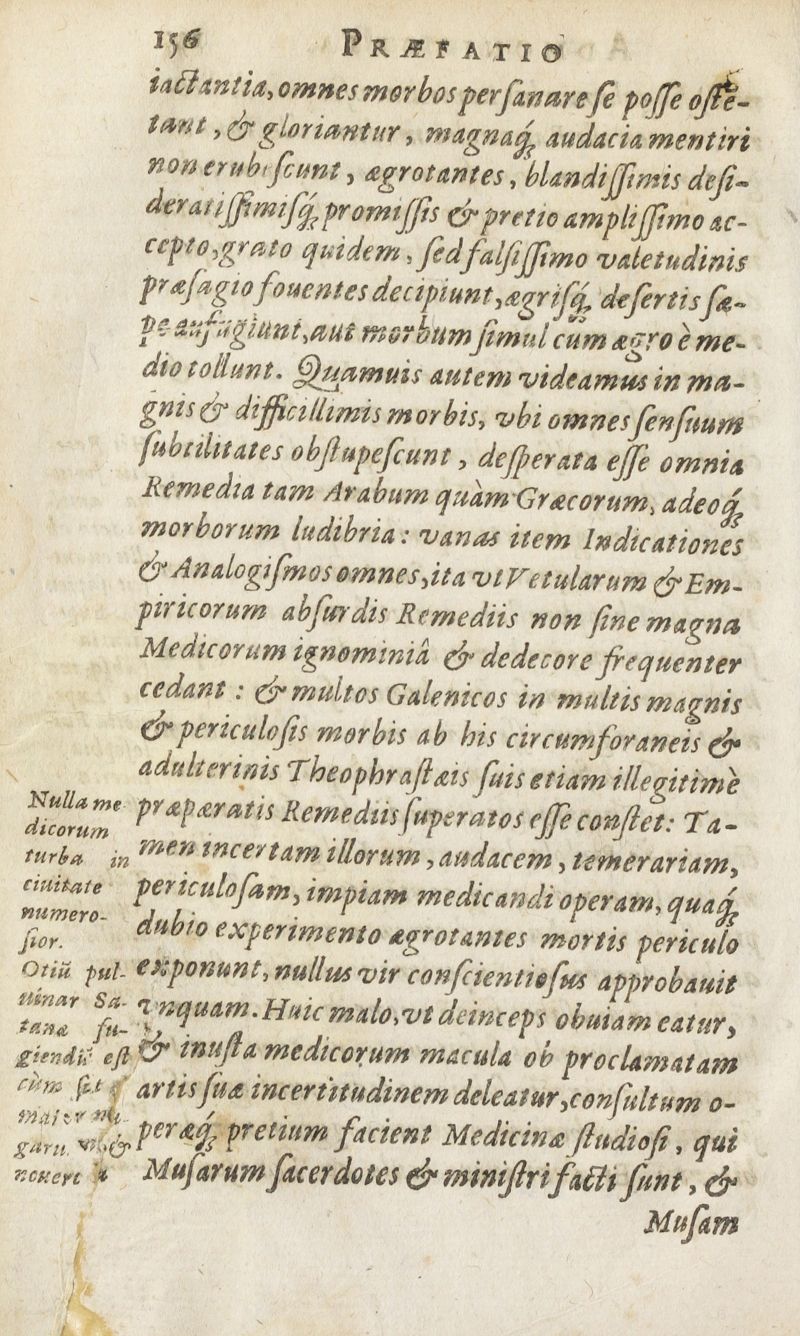 156 PRÆFATIO
iactantia, omnes morbos persanare se posse ostē-
tant, & gloriantur, magnaq́; audacia mentiri
non erubescunt, ægrotantes, blandissimis desi-
deratissimisq́; promissis & pretio amplissimo ac-
cepto, grato quidem, sed falsissimo valetudinis
præsagio fouentes decipiunt, ægrisq́; desertis sæ-
pe aufugiunt, aut morbum simul cum ægro è me-
dio tollunt. Quamuis autem videamus in ma-
gnis & difficillimis morbis, vbi omnes sensuum
subtilitates obstupescunt, desperata esse omnia
Remedia tam Arabum quàm Græcorum, adeoq́;
morborum ludibria: vanas item Indicationes
& Analogismos omnes, ita vt Vetularum & Em-
piricorum absurdis Remediis non sine magna
Medicorum ignominiâ & dedecore frequenter
cedant: & multos Galenicos in multis magnis
& periculosis morbis ab his circumforaneis &
adulterinis Theophrastæis suis etiam illegitimè
præpæratis Remediis superatos esse constet: Ta-
men incertam illorum, audacem, temerariam,
periculosam, impiam medicandi operam, quaq́;
dubio experimento ægrotantes mortis periculo
exponunt, nullus vir conscientiosus approbauit
vnquam. Huic malo, vt deinceps obuiam eatur,
& inusta medicorum macula ob proclamatam
artis suæ incertitudinem deleatur, consultum o-
peræq́; pretium facient Medicinæ studiosi, qui
Musarum sacerdotes & ministri facti sunt, &
Musam
Nulla me
dicorum
turba in
ciuitate
numero-
sior.
Otiū pul-
uinar Sa-
tanæ fu-
giendū est
cùm sit
maior
garū &